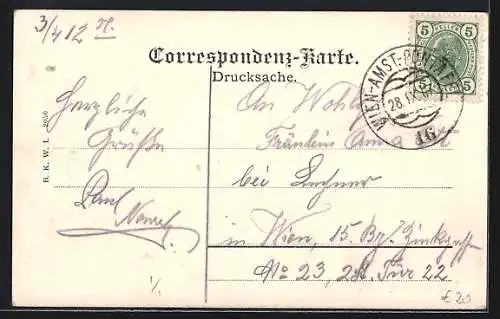 3/4 12 H.
Correspondenz-Karte.
Drucksache.
5 HELLER 5
5 5
WIEN-AMST
28. IX.
16
B. K. W. I. 2050
Herzliche
Grüße
Paul
An Wohlg.
Fräulein Anna
bei Lechner
in Wien, 15. Bz. Zinkgasse
No 23, 2. St. Tür 22
1/1
€ 20